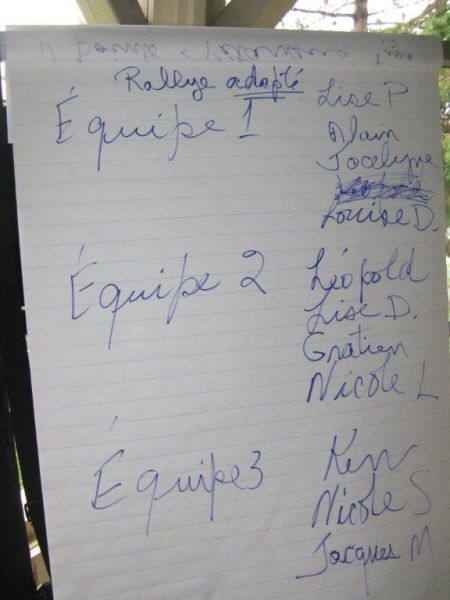 Rallye adapté
Équipe 1
Lise P
Alain
Jocelyne
Louise D.
Équipe 2
Léopold
Lise D.
Gratien
Nicole L
Équipe 3
Ken
Nicole S
Jacques M